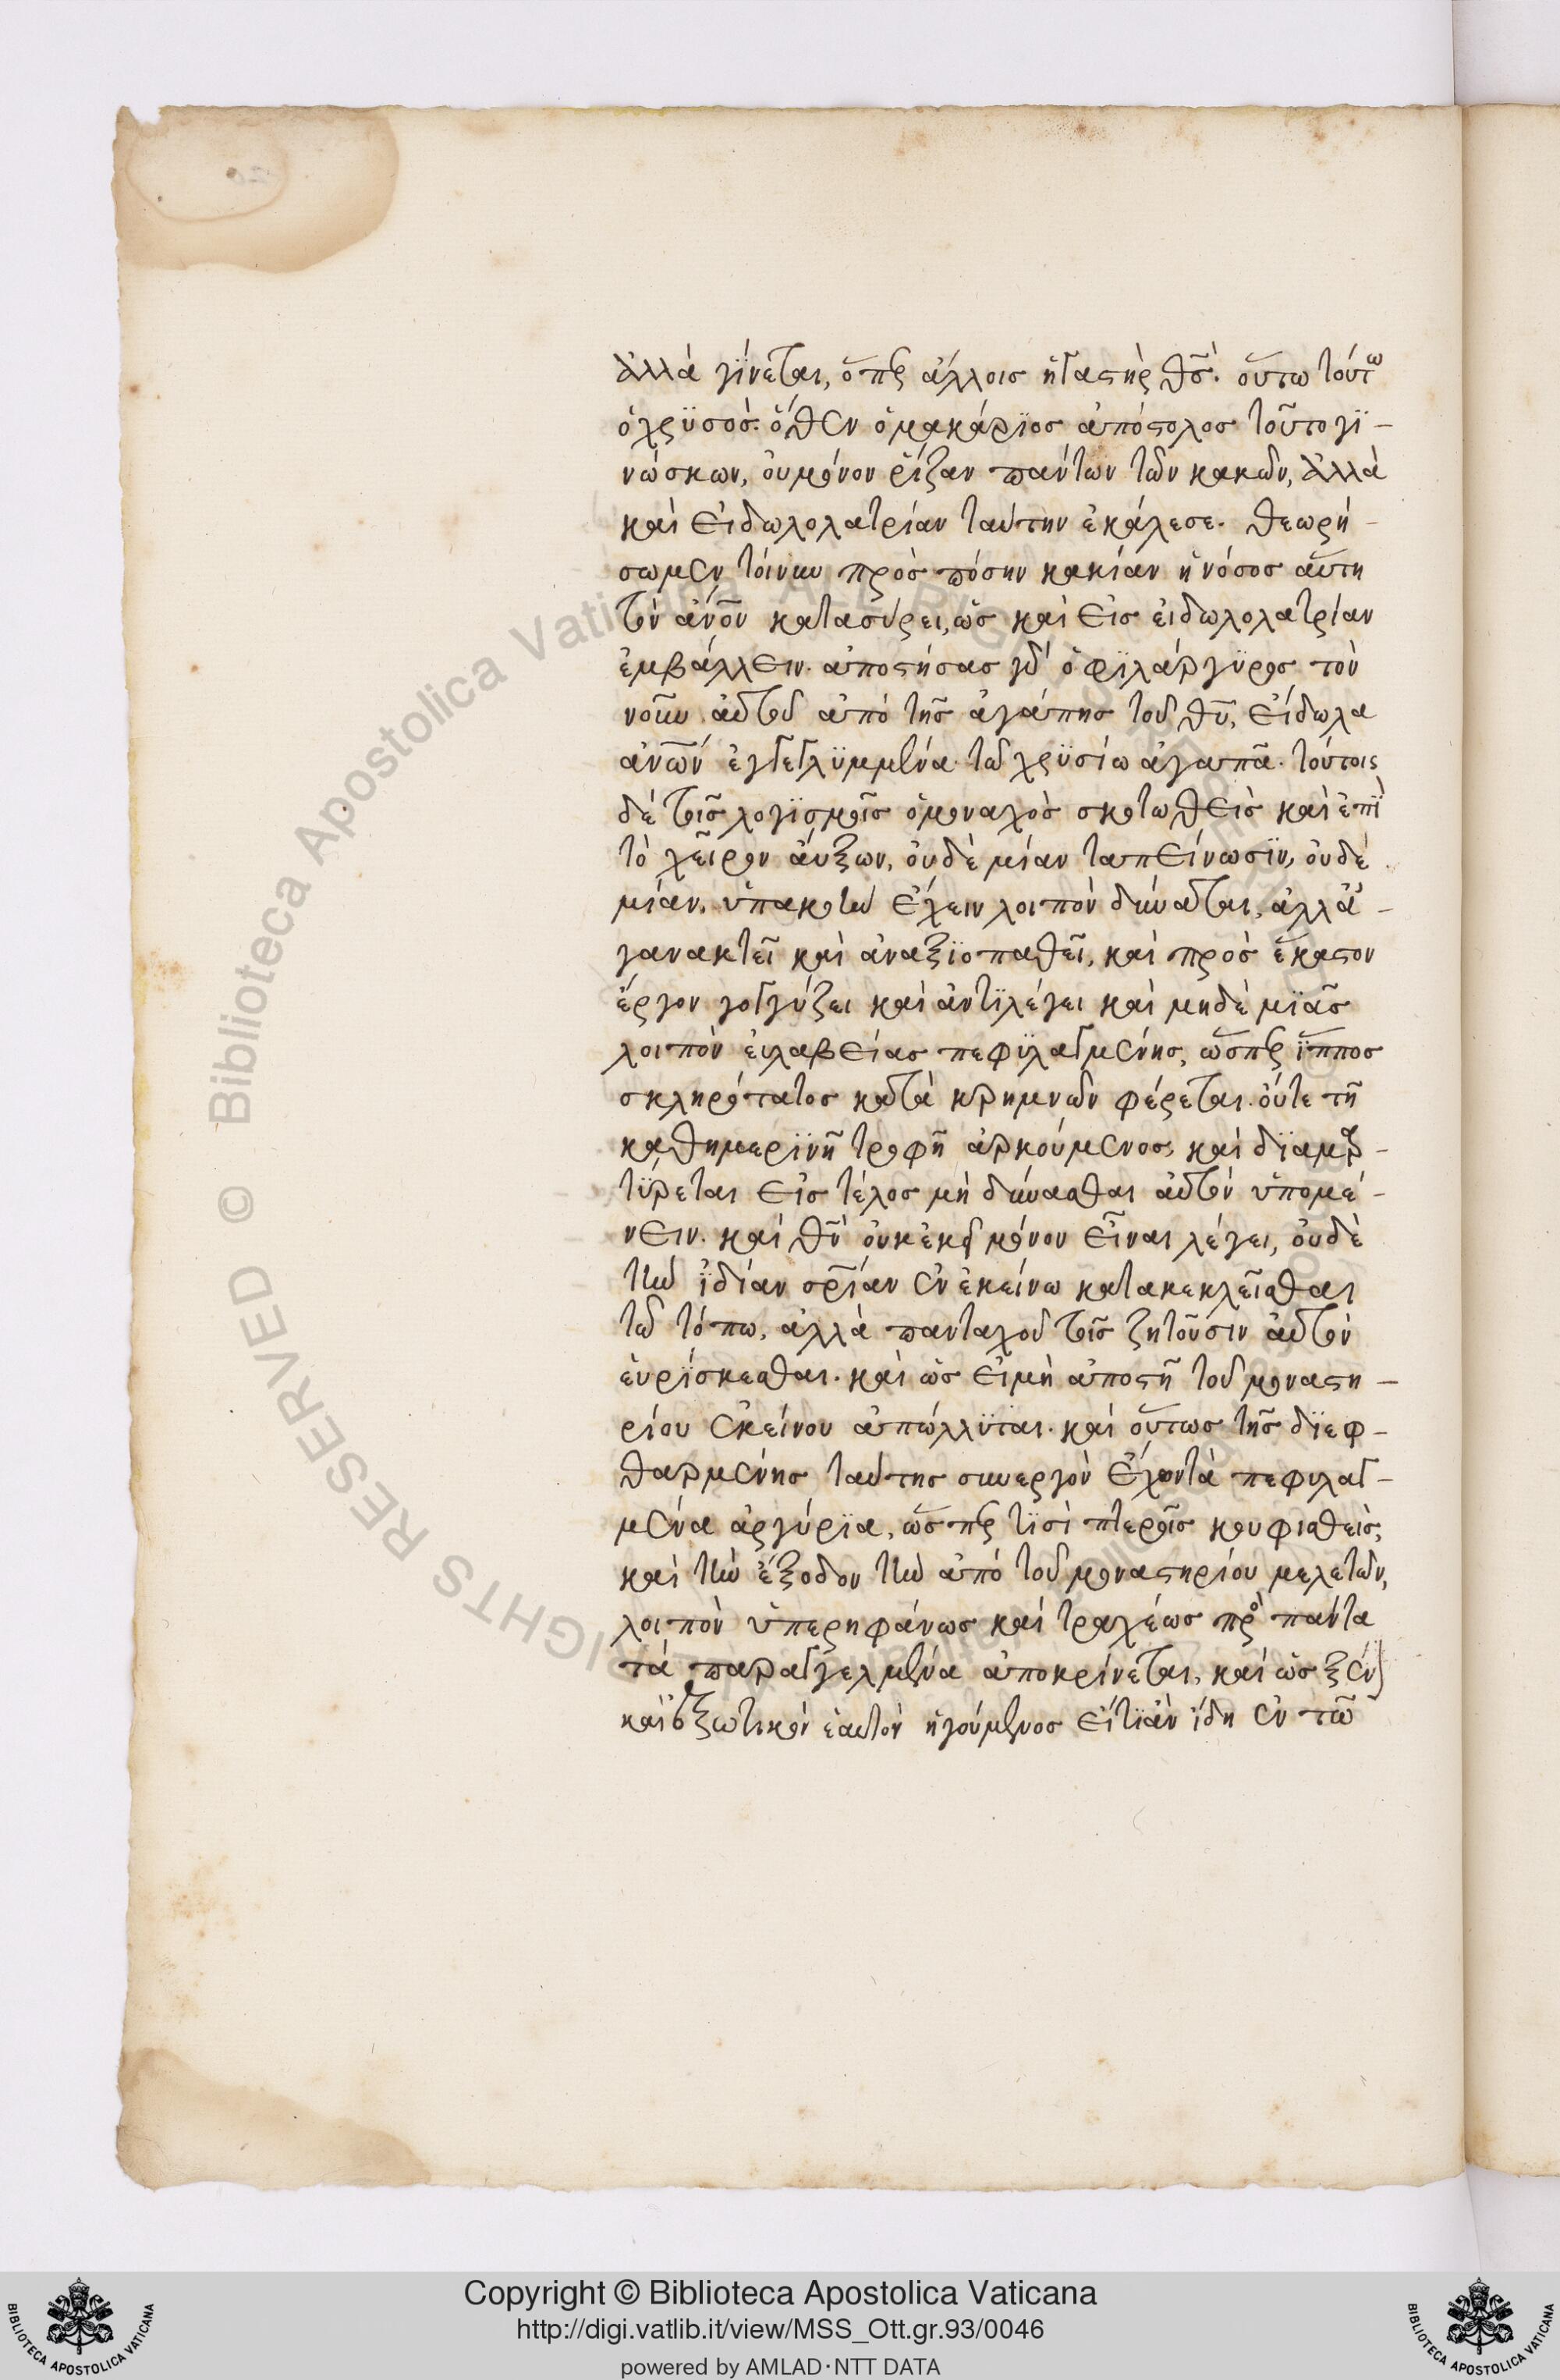 ἀλλὰ γίνεται, ὅπερ ἄλλοις ἡ γαστὴρ θς̄. οὕτω τούτω
ὁ χρϋσὸς. ὅθεν ὁ μακάριος ἀπόστολος τοῦτο γϊ-
νώσκων, οὐ μόνον ῥίζαν πάντων τῶν κακῶν, ἀλλὰ
καὶ εἰδωλολατρίαν ταύτην ἐκάλεσε. θεωρή-
σωμεν τοίνυν πρὸς πόσην κακίαν ἡ νόσος αὕτη
τὸν ἀνο̄ν κατασύρει, ὡς καὶ εἰς εἰδωλολατρίαν
ἐμβάλλειν. ἀποστήσας γὰρ ὁ φϊλάργϋρος τὸν
νοῦν αὐτοῦ ἀπὸ τῆς ἀγάπης τοῦ θῡ, εἴδωλα
ἀνω̄ν ἐγγεγλϋμμένα τῶ χρϋσίω ἀγαπᾶ. τούτοις
δὲ τοῖς λογϊσμοῖς ὁ μοναχὸς σκοτωθεὶς καὶ ἐπὶ
τὸ χεῖρον αὔξων, οὐδὲ μίαν ταπείνωσϊν, οὐδὲ
μίαν ὑπακοὴν ἔχειν λοιπὸν δύναται, ἀλλ' ἀ-
γανακτεῖ καὶ ἀναξϊοπαθεῖ, καὶ πρὸς ἕκαστον
ἔργον γογγύζει καὶ ἀντϊλέγει καὶ μηδὲ μϊᾶς
λοιπὸν εὐλαβείας πεφϋλαγμένης, ὥσπερ ἵππος
σκληρότατος κατὰ κρημνῶν φέρεται. οὔτε τῆ
καθημερϊνῆ τροφῆ ἀρκούμενος, καὶ δϊαμαρ-
τϋρεται εἰς τέλος μὴ δύνασθαι αὐτὸν ὑπομέ-
νειν. καὶ θν̄ οὐκ ἐκεῖ μόνον εἶναι λέγει, οὐδὲ
τὴν ἰδίαν σρ̄ίαν ἐν ἐκείνω κατακεκλεῖσθαι
τῶ τόπω, ἀλλὰ πανταχοῦ τοῖς ζητοῦσιν αὐτὸν
εὑρίσκεσθαι. καὶ ὡς εἰ μὴ ἀποστῆ τοῦ μοναστη-
ρίου ἐκείνου ἀπώλλϋται. καὶ οὕτως τῆς δϊεφ-
θαρμένης ταύτης συνεργὸν ἔχοντὰ πεφυλαγ-
μένα ἀργύρϊα, ὥσπερ τϊσὶ πτεροῖς κουφισθεὶς,
καὶ τὴν ἔξοδον τὴν ἀπὸ τοῦ μοναστηρίου μελετῶν,
λοιπὸν ὑπερηφάνως καὶ τραχέως πρὸς πάντα
τὰ παραγγελμένα ἀποκρίνεται, καὶ ὡς ξένον
καὶ ἐξωτικὸν ἑαυτὸν ἡγούμενος εἴτϊ ἂν ἴδη ἐν τῶ
Copyright © Biblioteca Apostolica Vaticana
http://digi.vatlib.it/view/MSS_Ott.gr.93/0046
powered by AMLAD·NTT DATA
BIBLIOTECA APOSTOLICA VATICANA
BIBLIOTECA APOSTOLICA VATICANA